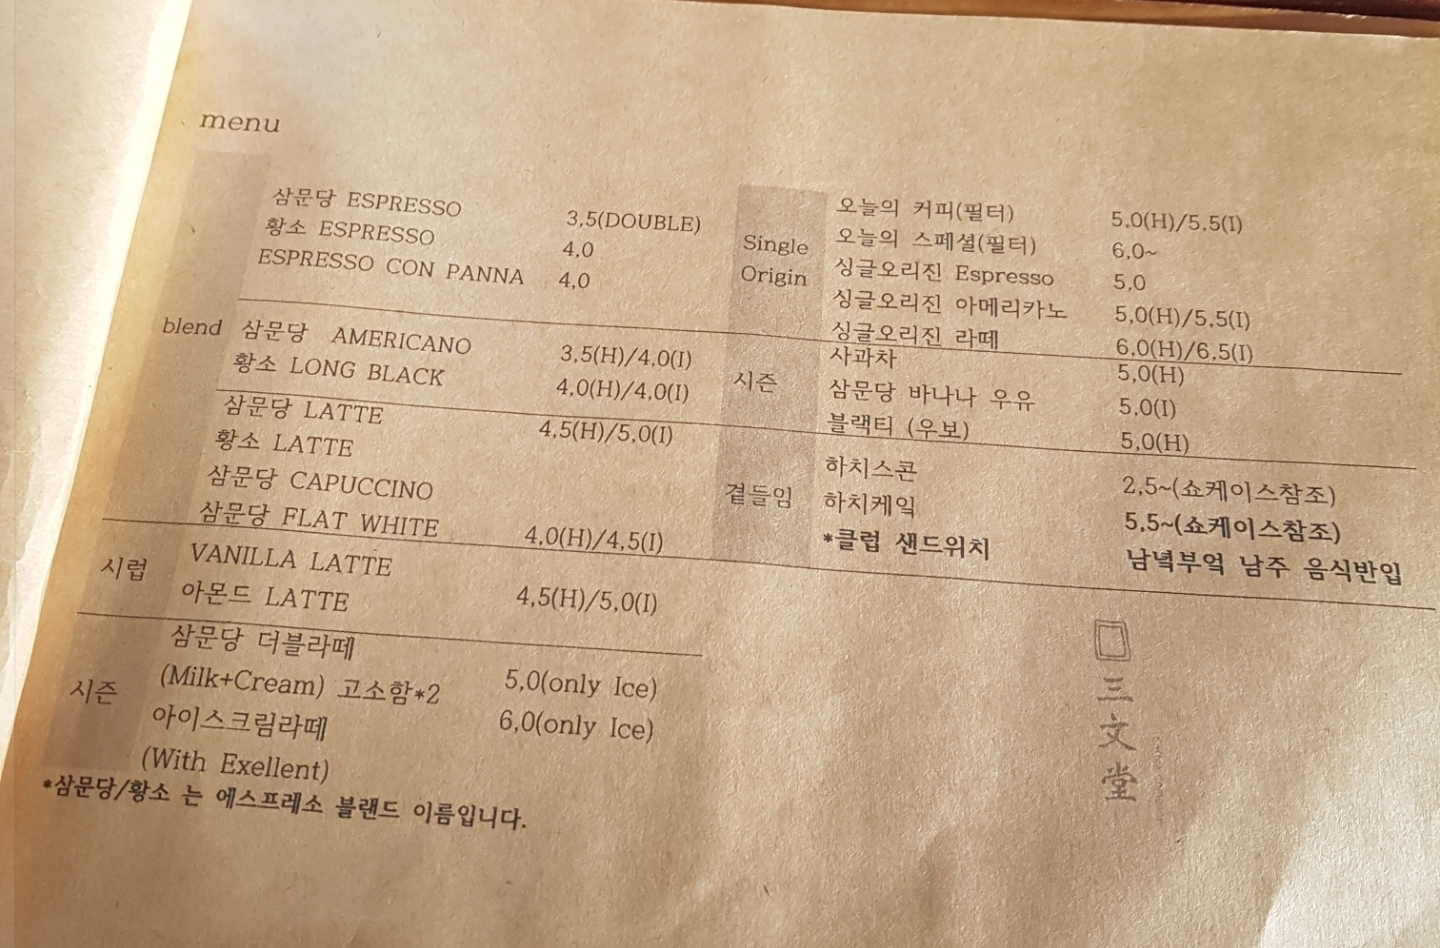 menu
blend
삼문당 ESPRESSO 3,5(DOUBLE)
황소 ESPRESSO 4,0
ESPRESSO CON PANNA 4,0
삼문당 AMERICANO 3,5(H)/4,0(I)
황소 LONG BLACK 4,0(H)/4,0(I)
삼문당 LATTE 4,5(H)/5,0(I)
황소 LATTE
삼문당 CAPUCCINO
삼문당 FLAT WHITE 4,0(H)/4,5(I)
시럽
VANILLA LATTE
아몬드 LATTE 4,5(H)/5,0(I)
시즌
삼문당 더블라떼
(Milk+Cream) 고소함*2 5,0(only Ice)
아이스크림라떼 6,0(only Ice)
(With Exellent)
*삼문당/황소 는 에스프레소 블랜드 이름입니다.
Single
Origin
오늘의 커피(필터) 5,0(H)/5,5(I)
오늘의 스페셜(필터) 6,0~
싱글오리진 Espresso 5,0
싱글오리진 아메리카노 5,0(H)/5,5(I)
싱글오리진 라떼 6,0(H)/6,5(I)
시즌
사과차 5,0(H)
삼문당 바나나 우유 5,0(I)
블랙티 (우보) 5,0(H)
곁들임
하치스콘 2,5~(쇼케이스참조)
하치케익 5,5~(쇼케이스참조)
*클럽 샌드위치 남녘부엌 남주 음식반입
三
文
堂